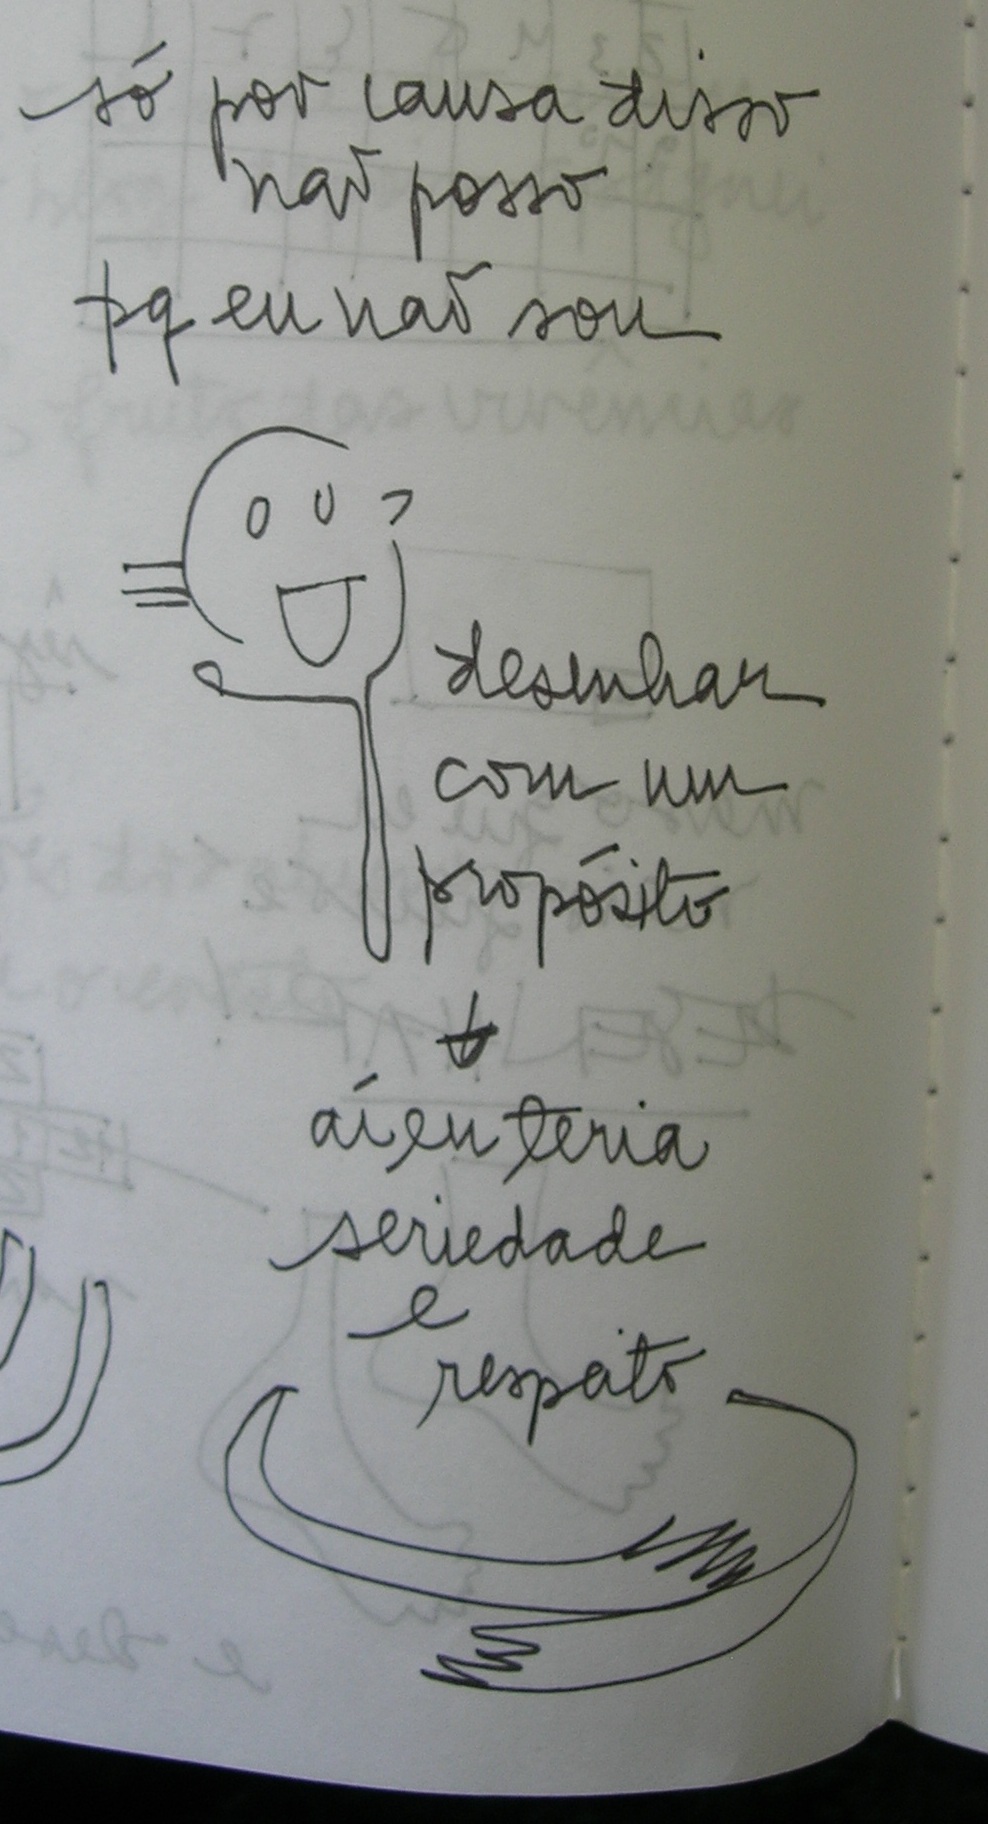 só por causa disso
não posso
pq eu não sou
desenhar
com um
propósito
aí eu teria
seriedade
e
respeito